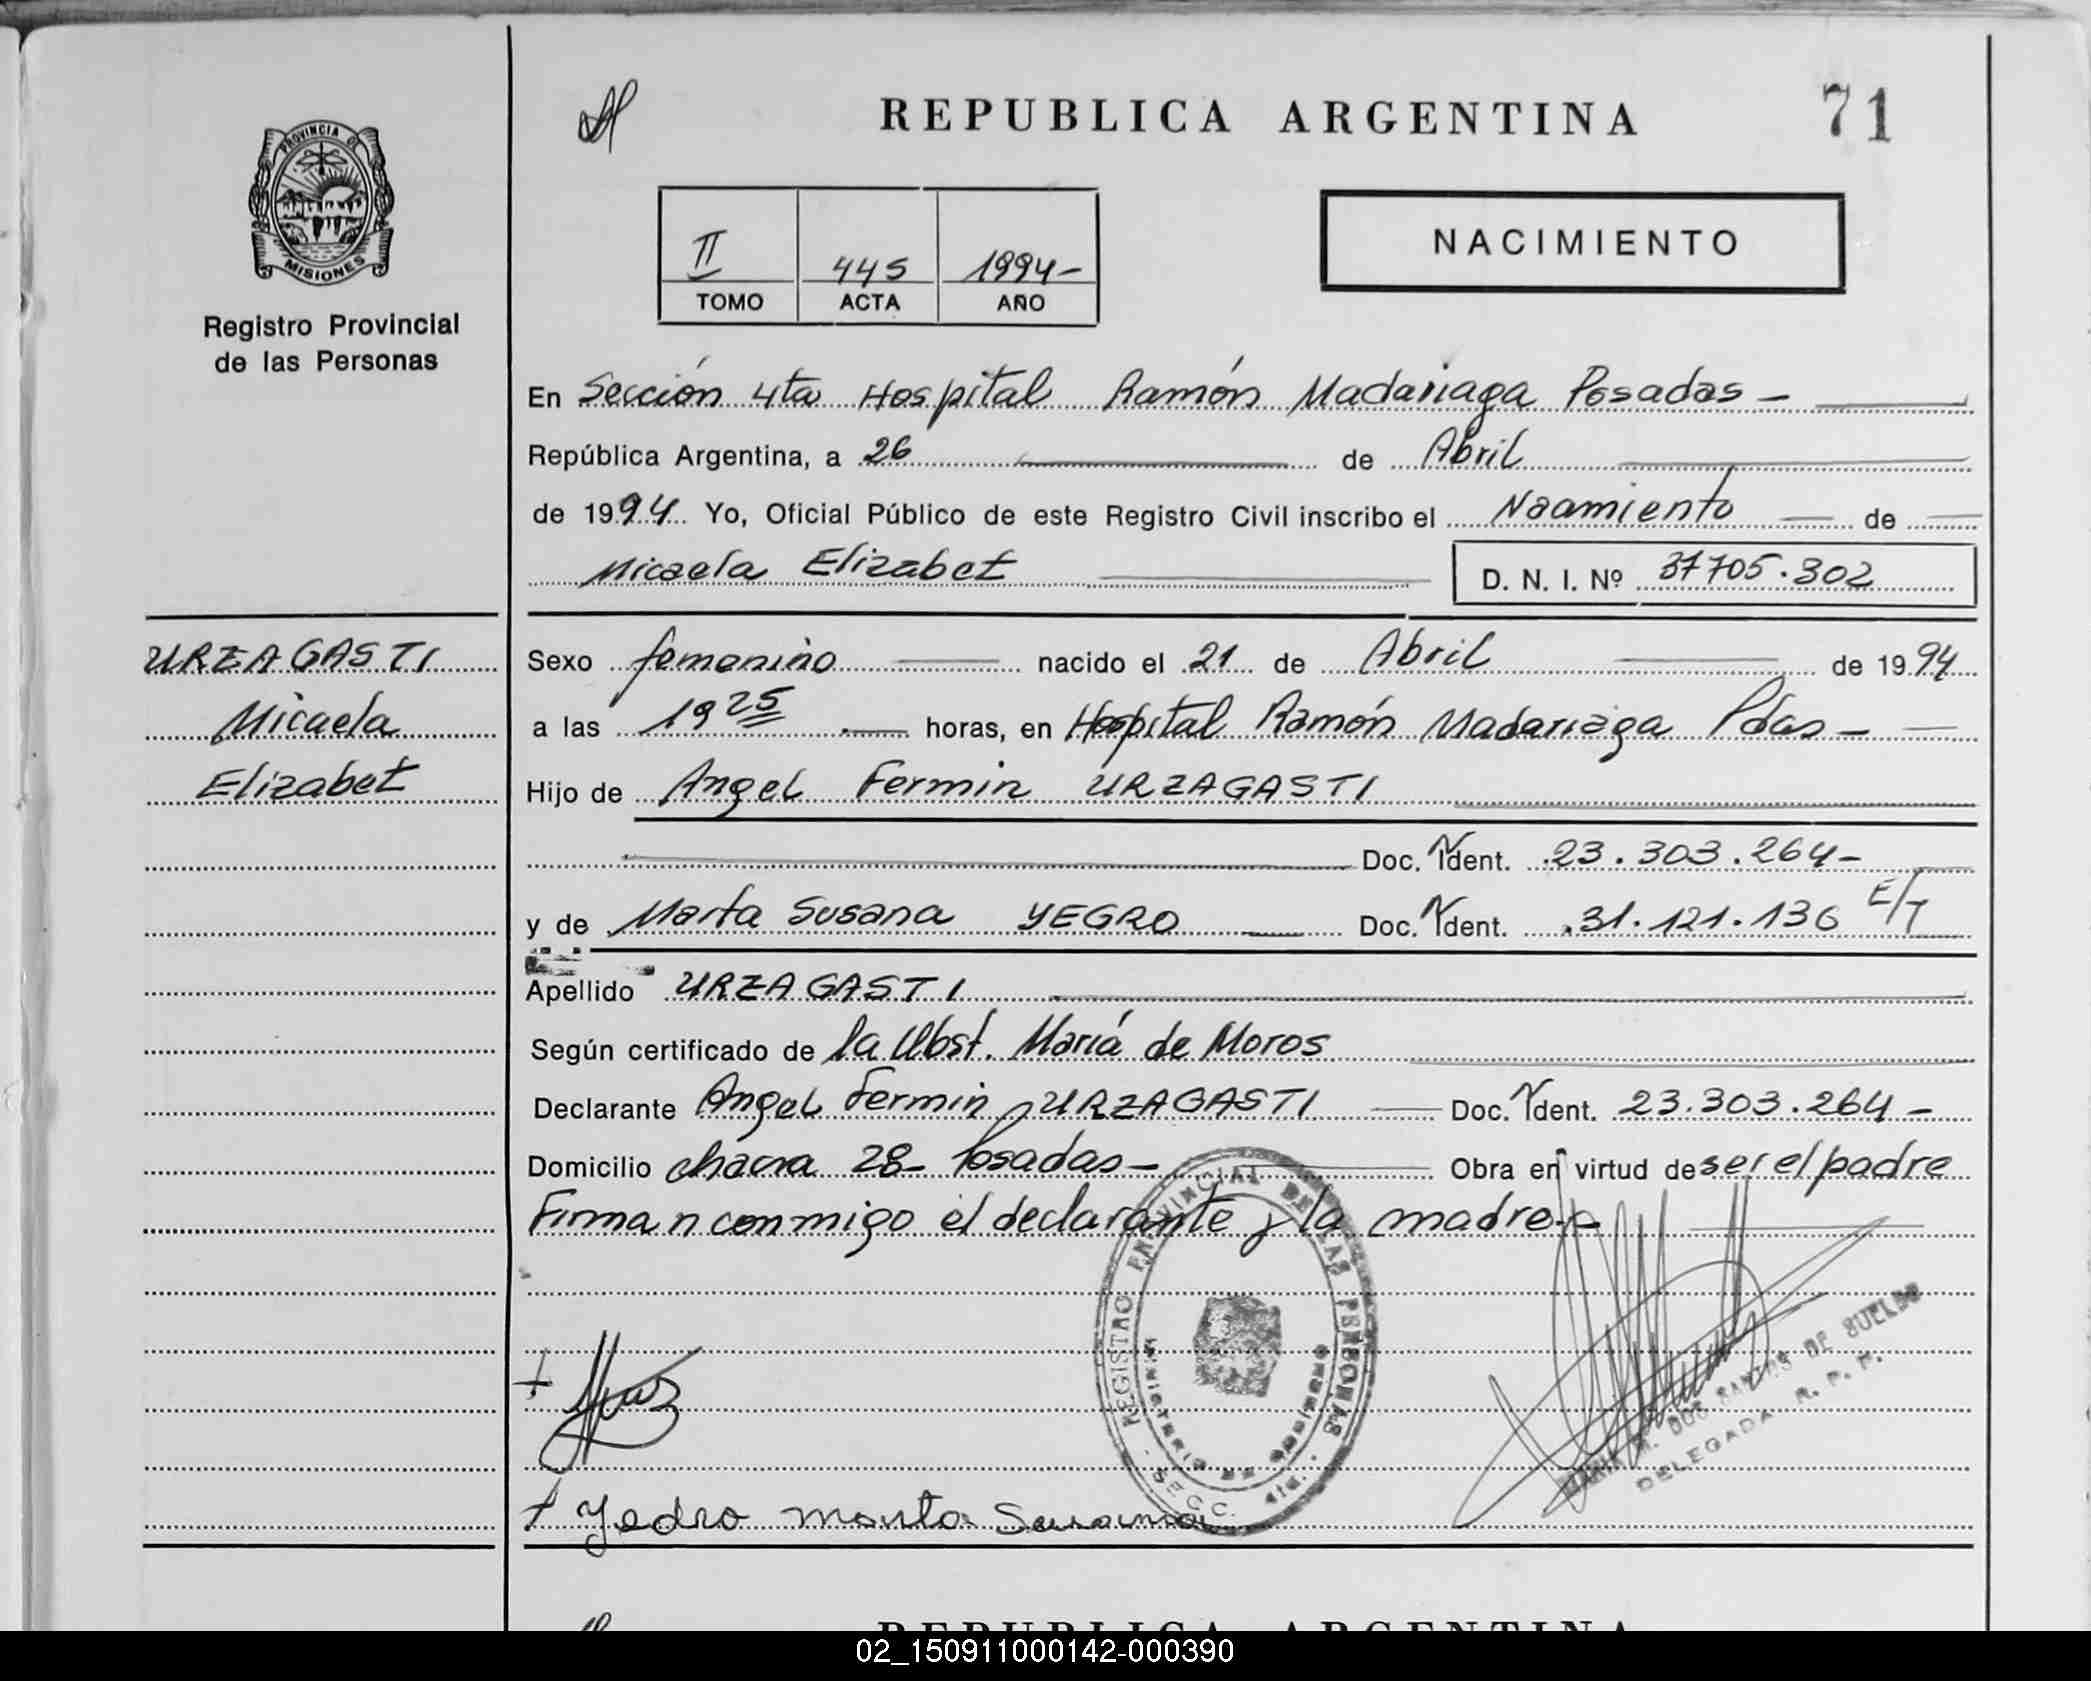 REPUBLICA ARGENTINA
71
PROVINCIA DE
MISIONES
Registro Provincial
de las Personas
II 445 1994-
TOMO ACTA AÑO
NACIMIENTO
En Sección 4ta Hospital Ramón Madariaga Posadas -
República Argentina, a 26 de Abril
de 1994 Yo, Oficial Público de este Registro Civil inscribo el Nacimiento de
Micaela Elizabet D. N. I. Nº 37705.302
URZAGASTI
Micaela
Elizabet
Sexo femenino nacido el 21 de Abril de 1994
a las 19 25 horas, en Hospital Ramón Madariaga Pdas -
Hijo de Angel Fermin URZAGASTI
Doc. Ident. 23.303.264-
y de Marta Susana YEGRO Doc. Ident. 31.121.136 E/T
Apellido URZAGASTI
Según certificado de la Obst. María de Moros
Declarante Angel Fermin URZAGASTI Doc. Ident. 23.303.264-
Domicilio chacra 28- Posadas- Obra en virtud de ser el padre
Firman conmigo el declarante y la madre.-
REGISTRO PROVINCIAL DE LAS PERSONAS
MINISTERIO DE GOBIERNO
SECC. 4ta.
MARIA M. DOS SANTOS DE SUELDO
DELEGADA R. P. P.
Yedro Marta Susana
REPUBLICA ARGENTINA
02_150911000142-000390